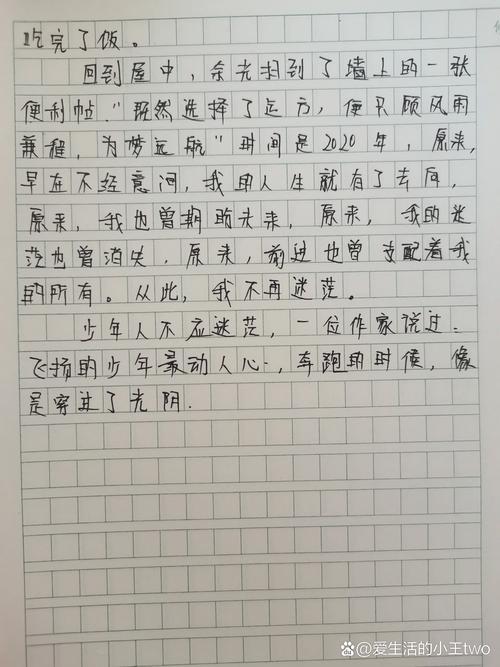 吃完了饭。
回到屋中，余光扫到了墙上的一张
便利帖."既然选择了远方，便只顾风雨
兼程，为梦远航"时间是2020年，原来，
早在不经意间，我的人生就有了去向，
原来，我也曾期盼未来，原来，我的迷
茫也曾消失，原来，前进也曾支配着我
的所有。从此，我不再迷茫。
少年人不应迷茫，一位作家说过：
飞扬的少年最动人心，奔跑的时候，像
是穿过了光阴.
爱生活的小王two